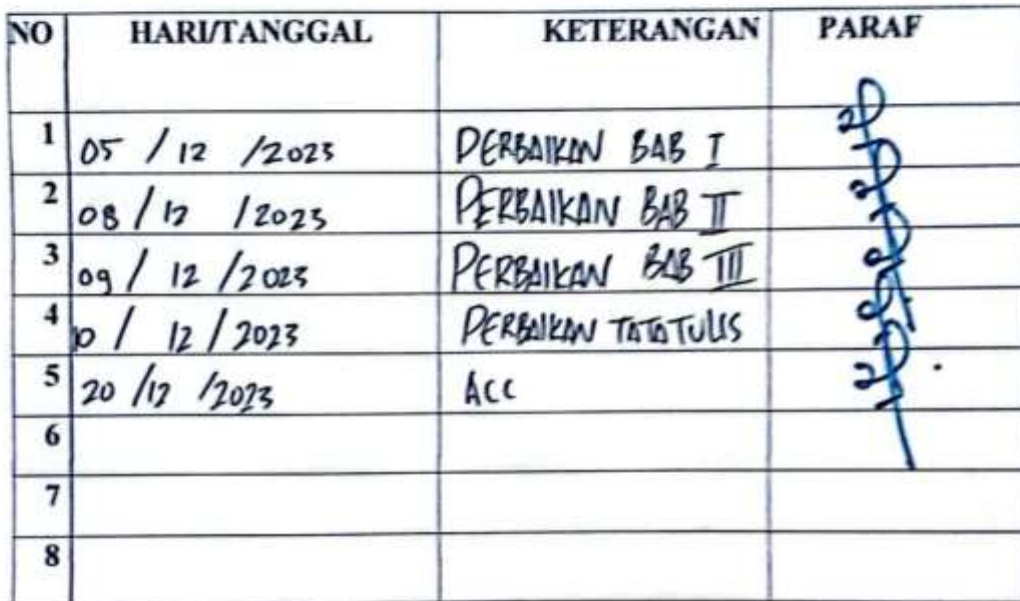 NO HARI/TANGGAL KETERANGAN PARAF
1 05 / 12 / 2023 PERBAIKAN BAB I
2 08 / 12 / 2023 PERBAIKAN BAB II
3 09 / 12 / 2023 PERBAIKAN BAB III
4 10 / 12 / 2023 PERBAIKAN TATA TULIS
5 20 / 12 / 2023 ACC
6
7
8